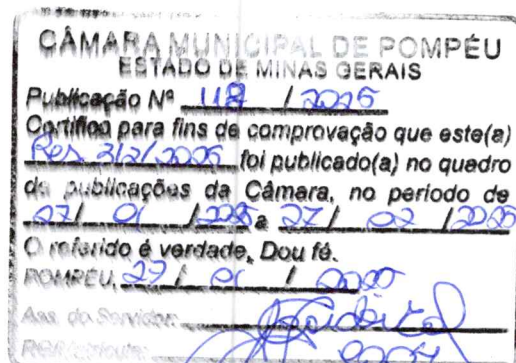 CÂMARA MUNICIPAL DE POMPÉU
ESTADO DE MINAS GERAIS
Publicação Nº / 2025
Certifico para fins de comprovação que este(a)
Res. /2025 foi publicado(a) no quadro
de publicações da Câmara, no período de
27/ 01 /2025 a 27/ 02 /2025
O referido é verdade, Dou fé.
POMPÉU, 27 / 01 / 2025
Ass. do Servidor: